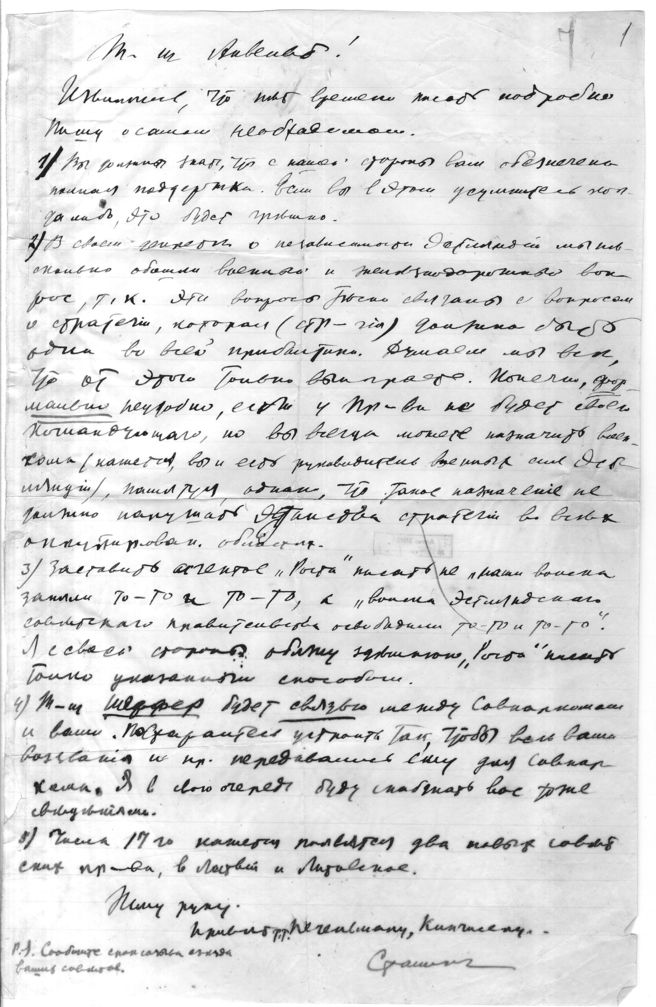 1
Т-щ Анвельт!
Извините, что нет времени писать подробно
Пишу о самом необходимом.
1) Вы должны знать, что с нашей стороны вам обезпечена
полная поддержка. Если вы в этом усумнитесь когда-
нибудь, это будет грешно.
2) В своем декрете о независимости Эстляндии мы не-
сколько обошли военный и железнодорожный воп-
рос, т.к. эти вопросы тесно связаны с вопросом
о стратегии, которая (стр-гия) должна быть
одна во всей прибалтике. Думаем мы все,
что от этого только выиграете. Конечно, фор-
мально неудобно, если у Пр-ва не будет своего
командующего, но вы всегда можете назначить воен-
кома (кажется, вы и есть руководитель военных сил Эст-
ляндии), пашлуся, однако, что такое назначение не
должно нарушать единства стратегии во всех
оккупирован. областях.
3) Заставить агентов „Роста" писать не „наши войска
заняли то-то и то-то, а „войска Эстляндского
советского правительства освободили то-то и то-то".
Я с своей стороны обяжу здешнюю „Роста" писать
только указанным способом.
4) Т-щ Шеффер будет связью между Совнаркомом
и вами. Постарайтесь устроить так, чтобы все ваши
воззвания и пр. передавались ему для Совнар-
кома. Я в свою очередь буду снабжать вас тоже
5) Числа 17го кажется появятся два новых совет
ских пр-ва, в Латвии и Литовское.
Жму руку.
Привет т.т. Пегельману, Кингисепу.
P.S. Сообщите списочно съезда
ваших советов.
Сталин